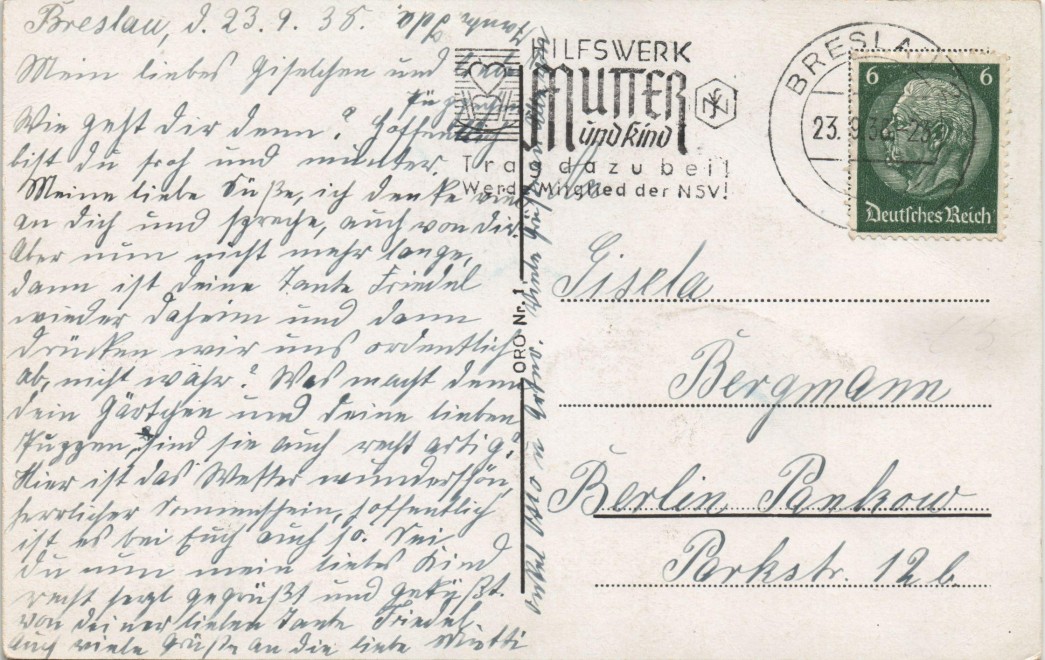 Breslau, d. 23.9.38.
Mein liebes Giselchen und
Püppchen
Wie geht dir denn? Hoffentlich
bist du froh und munter.
Meine liebe Süße, ich denke viel
an dich und spreche, auch von dir
Aber nun nicht mehr lange,
dann ist deine Tante Friedel
wieder daheim und dann
drücken wir uns ordentlich
ab, nicht wahr? Was macht denn
dein Gärtchen und deine lieben
Puppen, sind sie auch recht artig?
Hier ist das Wetter wunderschön,
herrlicher Sonnenschein, hoffentlich
ist es bei Euch auch so. Sei
du nun mein liebes Kind
recht herzl gegrüßt und geküßt
von deiner lieben Tante Friedel
Auch viele Grüße an die liebe Mutti
Onkel Otto u
viele Grüße
HILFSWERK
MUTTER
und Kind
Trag dazu bei!
Werde Mitglied der NSV!
BRESLAU
23.9.38
6 6
Deutsches Reich
ORO Nr. 1
Gisela
Bergmann
Berlin Pankow
Parkstr. 12b